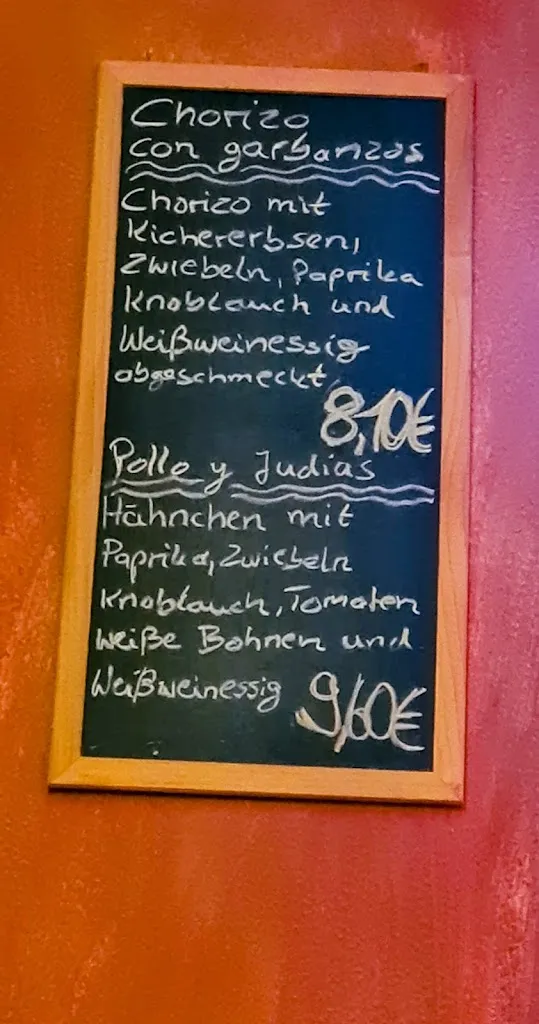 Chorizo
con garbanzos
Chorizo mit
Kichererbsen,
Zwiebeln, Paprika
Knoblauch und
Weißweinessig
abgeschmeckt
8,10€
Pollo y Judias
Hähnchen mit
Paprika, Zwiebeln
Knoblauch, Tomaten
weiße Bohnen und
Weißweinessig
9,60€